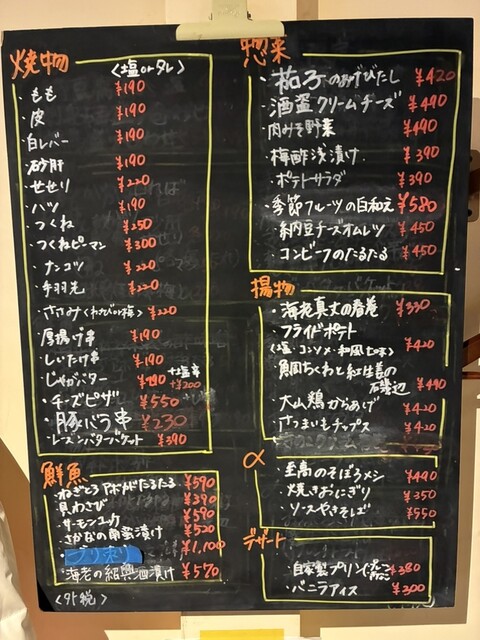 焼物 〈塩orタレ〉
・もも ¥190
・皮 ¥190
・白レバー ¥190
・砂肝 ¥190
・せせり ¥220
・ハツ ¥190
・つくね ¥250
・つくねピーマン ¥300
・ナンコツ ¥220
・手羽先 ¥220
・ささみ(わさびor梅) ¥220
・厚揚げ串 ¥190
・しいたけ串 ¥190
・じゃがバター ¥190 +塩辛 +¥200
・チーズピザ ¥550
・豚バラ串 ¥230
・レーズンバターバケット ¥390
鮮魚
・ねぎとろアボがたるたる ¥590
・貝わさび ¥390
・サーモンユッケ ¥590
・さかなの南蛮漬け ¥520
¥1,100
・海老の紹興酒漬け ¥570
〈外税〉
惣菜
・茄子のおかひたし ¥420
・酒盗クリームチーズ ¥490
・肉みそ野菜 ¥490
・梅酢浅漬け ¥390
・ポテトサラダ ¥390
・季節フルーツの白和え ¥580
・納豆チーズオムレツ ¥450
・コンビーフのたるたる ¥450
揚物
・海老真丈の春巻 ¥330
・フライドポテト
(塩・コンソメ・和風七味) ¥420
・魚肉ちくわと紅生姜の
磯辺 ¥490
・大山鶏からあげ ¥420
・さつまいもチップス ¥420
α
・至高のそぼろメシ ¥490
・焼きおにぎり ¥350
・ソースやきそば ¥550
デザート
・自家製プリン ¥380
・バニラアイス ¥300